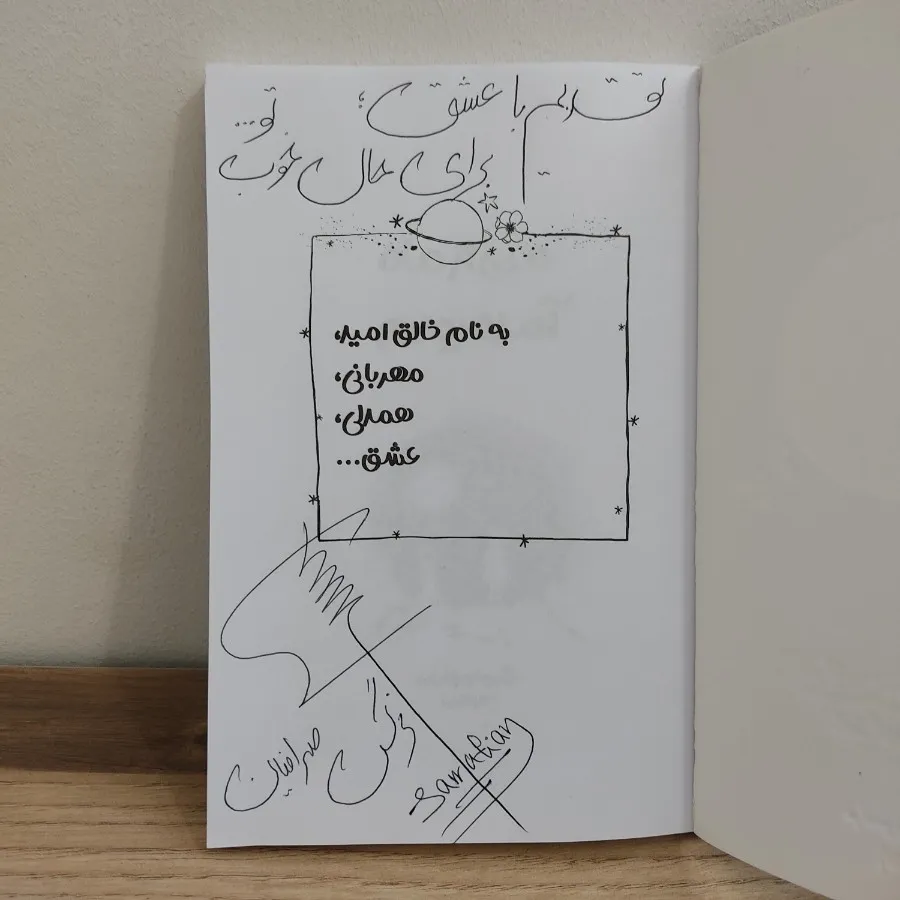 تقدیم با عشق؛
برای حال خوب
تو...
به نام خالق امید،
مهربانی،
همدلی،
عشق...
نرگس
صرافیان
sarrafian